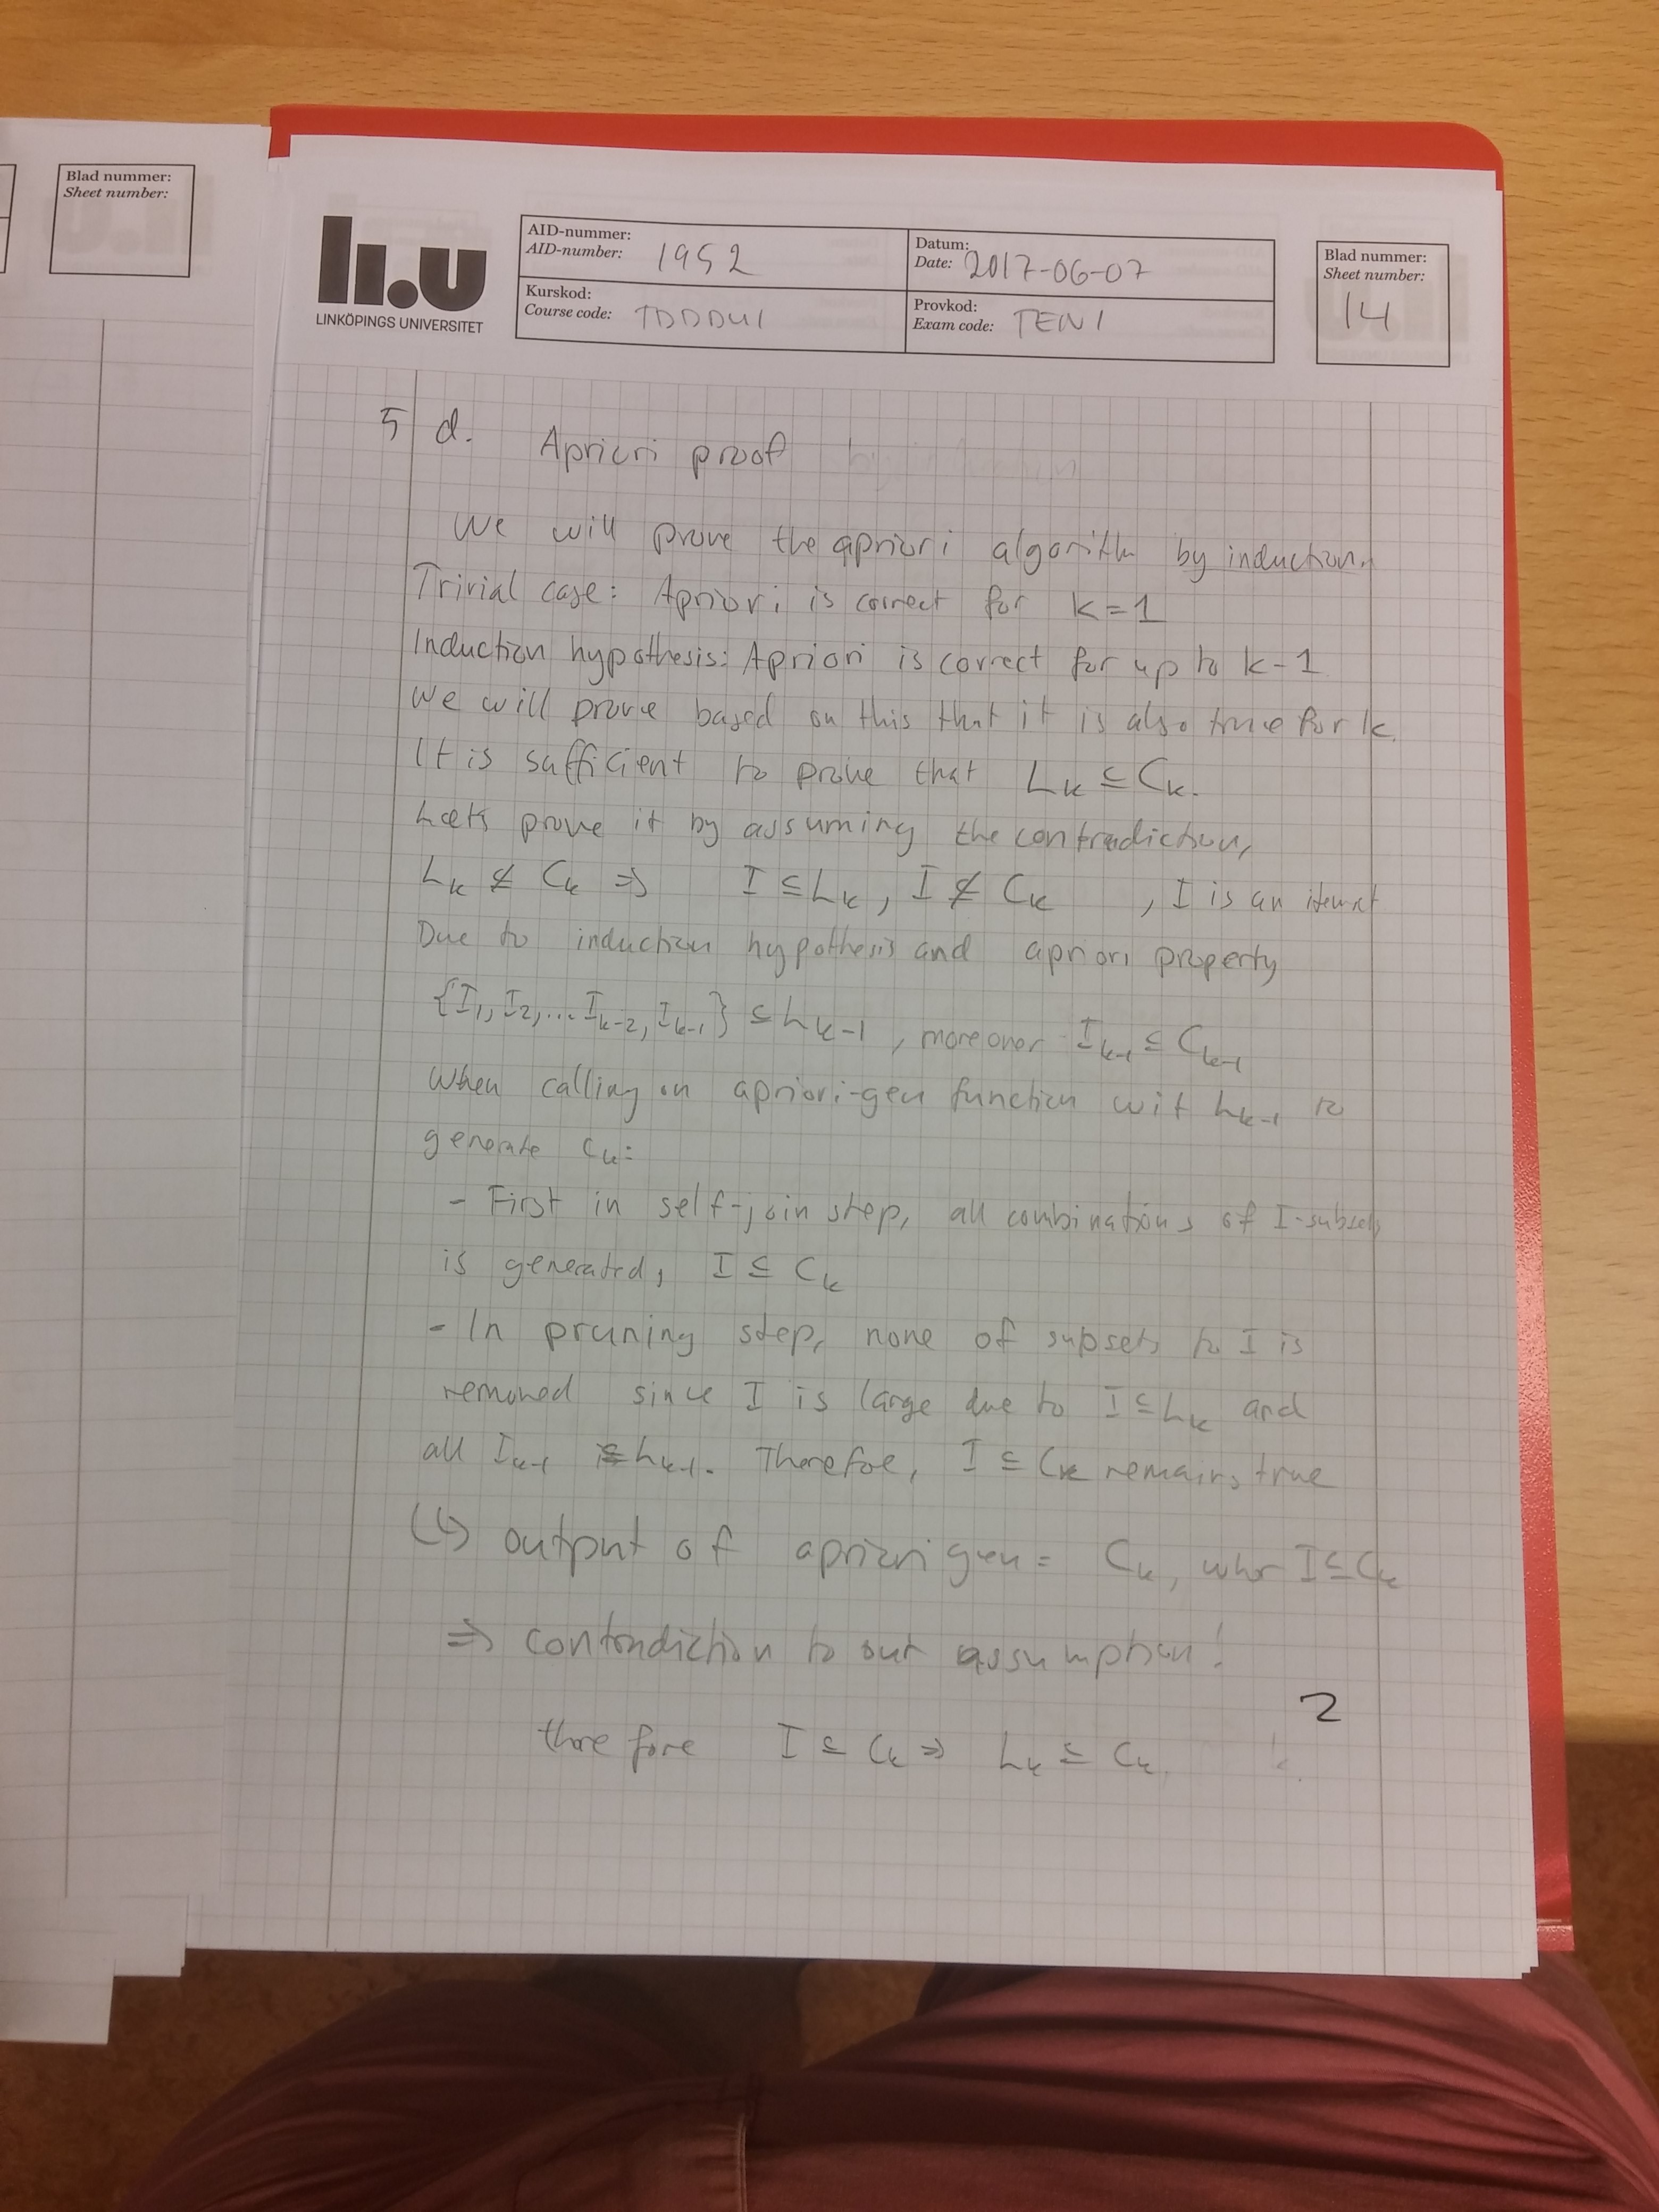 Blad nummer:
Sheet number:
li.u
LINKÖPINGS UNIVERSITET
AID-nummer:
AID-number: 1952
Datum:
Date: 2017-06-07
Kurskod:
Course code: TDDD41
Provkod:
Exam code: TEN1
Blad nummer:
Sheet number:
14
5 d. Apriori proof
We will prove the apriori algorithm by induction.
Trivial case: Apriori is correct for k=1
Induction hypothesis: Apriori is correct for up to k-1
We will prove based on this that it is also true for k.
It is sufficient to prove that Lk ⊆ Ck.
Lets prove it by assuming the contradiction,
Lk ⊈ Ck ⇒ I ⊆ Lk, I ⊈ Ck , I is an itemset
Due to induction hypothesis and apriori property
{I1, I2, ... Ik-2, Ik-1} ⊆ Lk-1, moreover Ik-1 ⊆ Ck-1
When calling on apriori-gen function wit Lk-1 to
generate Ck:
- First in self-join step, all combinations of I-subsets
is generated, I ⊆ Ck
- In pruning step, none of subsets to I is
removed since I is large due to I ⊆ Lk and
all Ik-1 ⊆ Lk-1. Therefoe, I ⊆ Ck remains true
(↳) output of apriori gen = Ck, wher I ⊆ Ck
⇒ contradiction to our assumption!
2
therefore I ⊆ Ck ⇒ Lk ⊆ Ck.